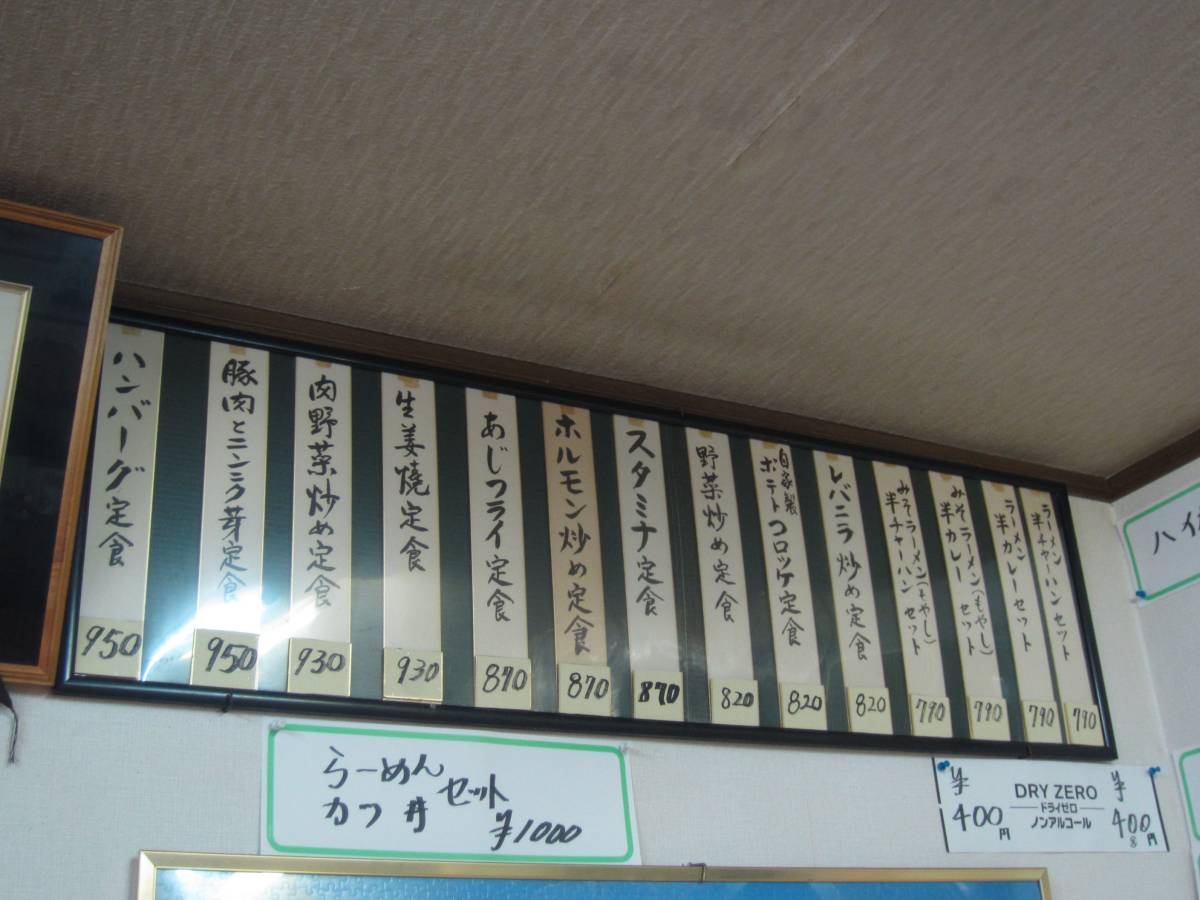 ラーメン
半チャーハンセット
790
ラーメン
半カレーセット
790
みそラーメン(もやし)
半カレー セット
790
みそラーメン(もやし)
半チャーハン セット
790
レバニラ炒め定食
820
自家製
ポテトコロッケ定食
820
野菜炒め定食
820
スタミナ定食
870
ホルモン炒め定食
870
あじフライ定食
870
生姜焼定食
930
肉野菜炒め定食
930
豚肉とニンニク芽定食
950
ハンバーグ定食
950
らーめん
カツ丼
セット
¥1000
DRY ZERO
ドライゼロ
ノンアルコール
¥
400円
¥
400
ハイ